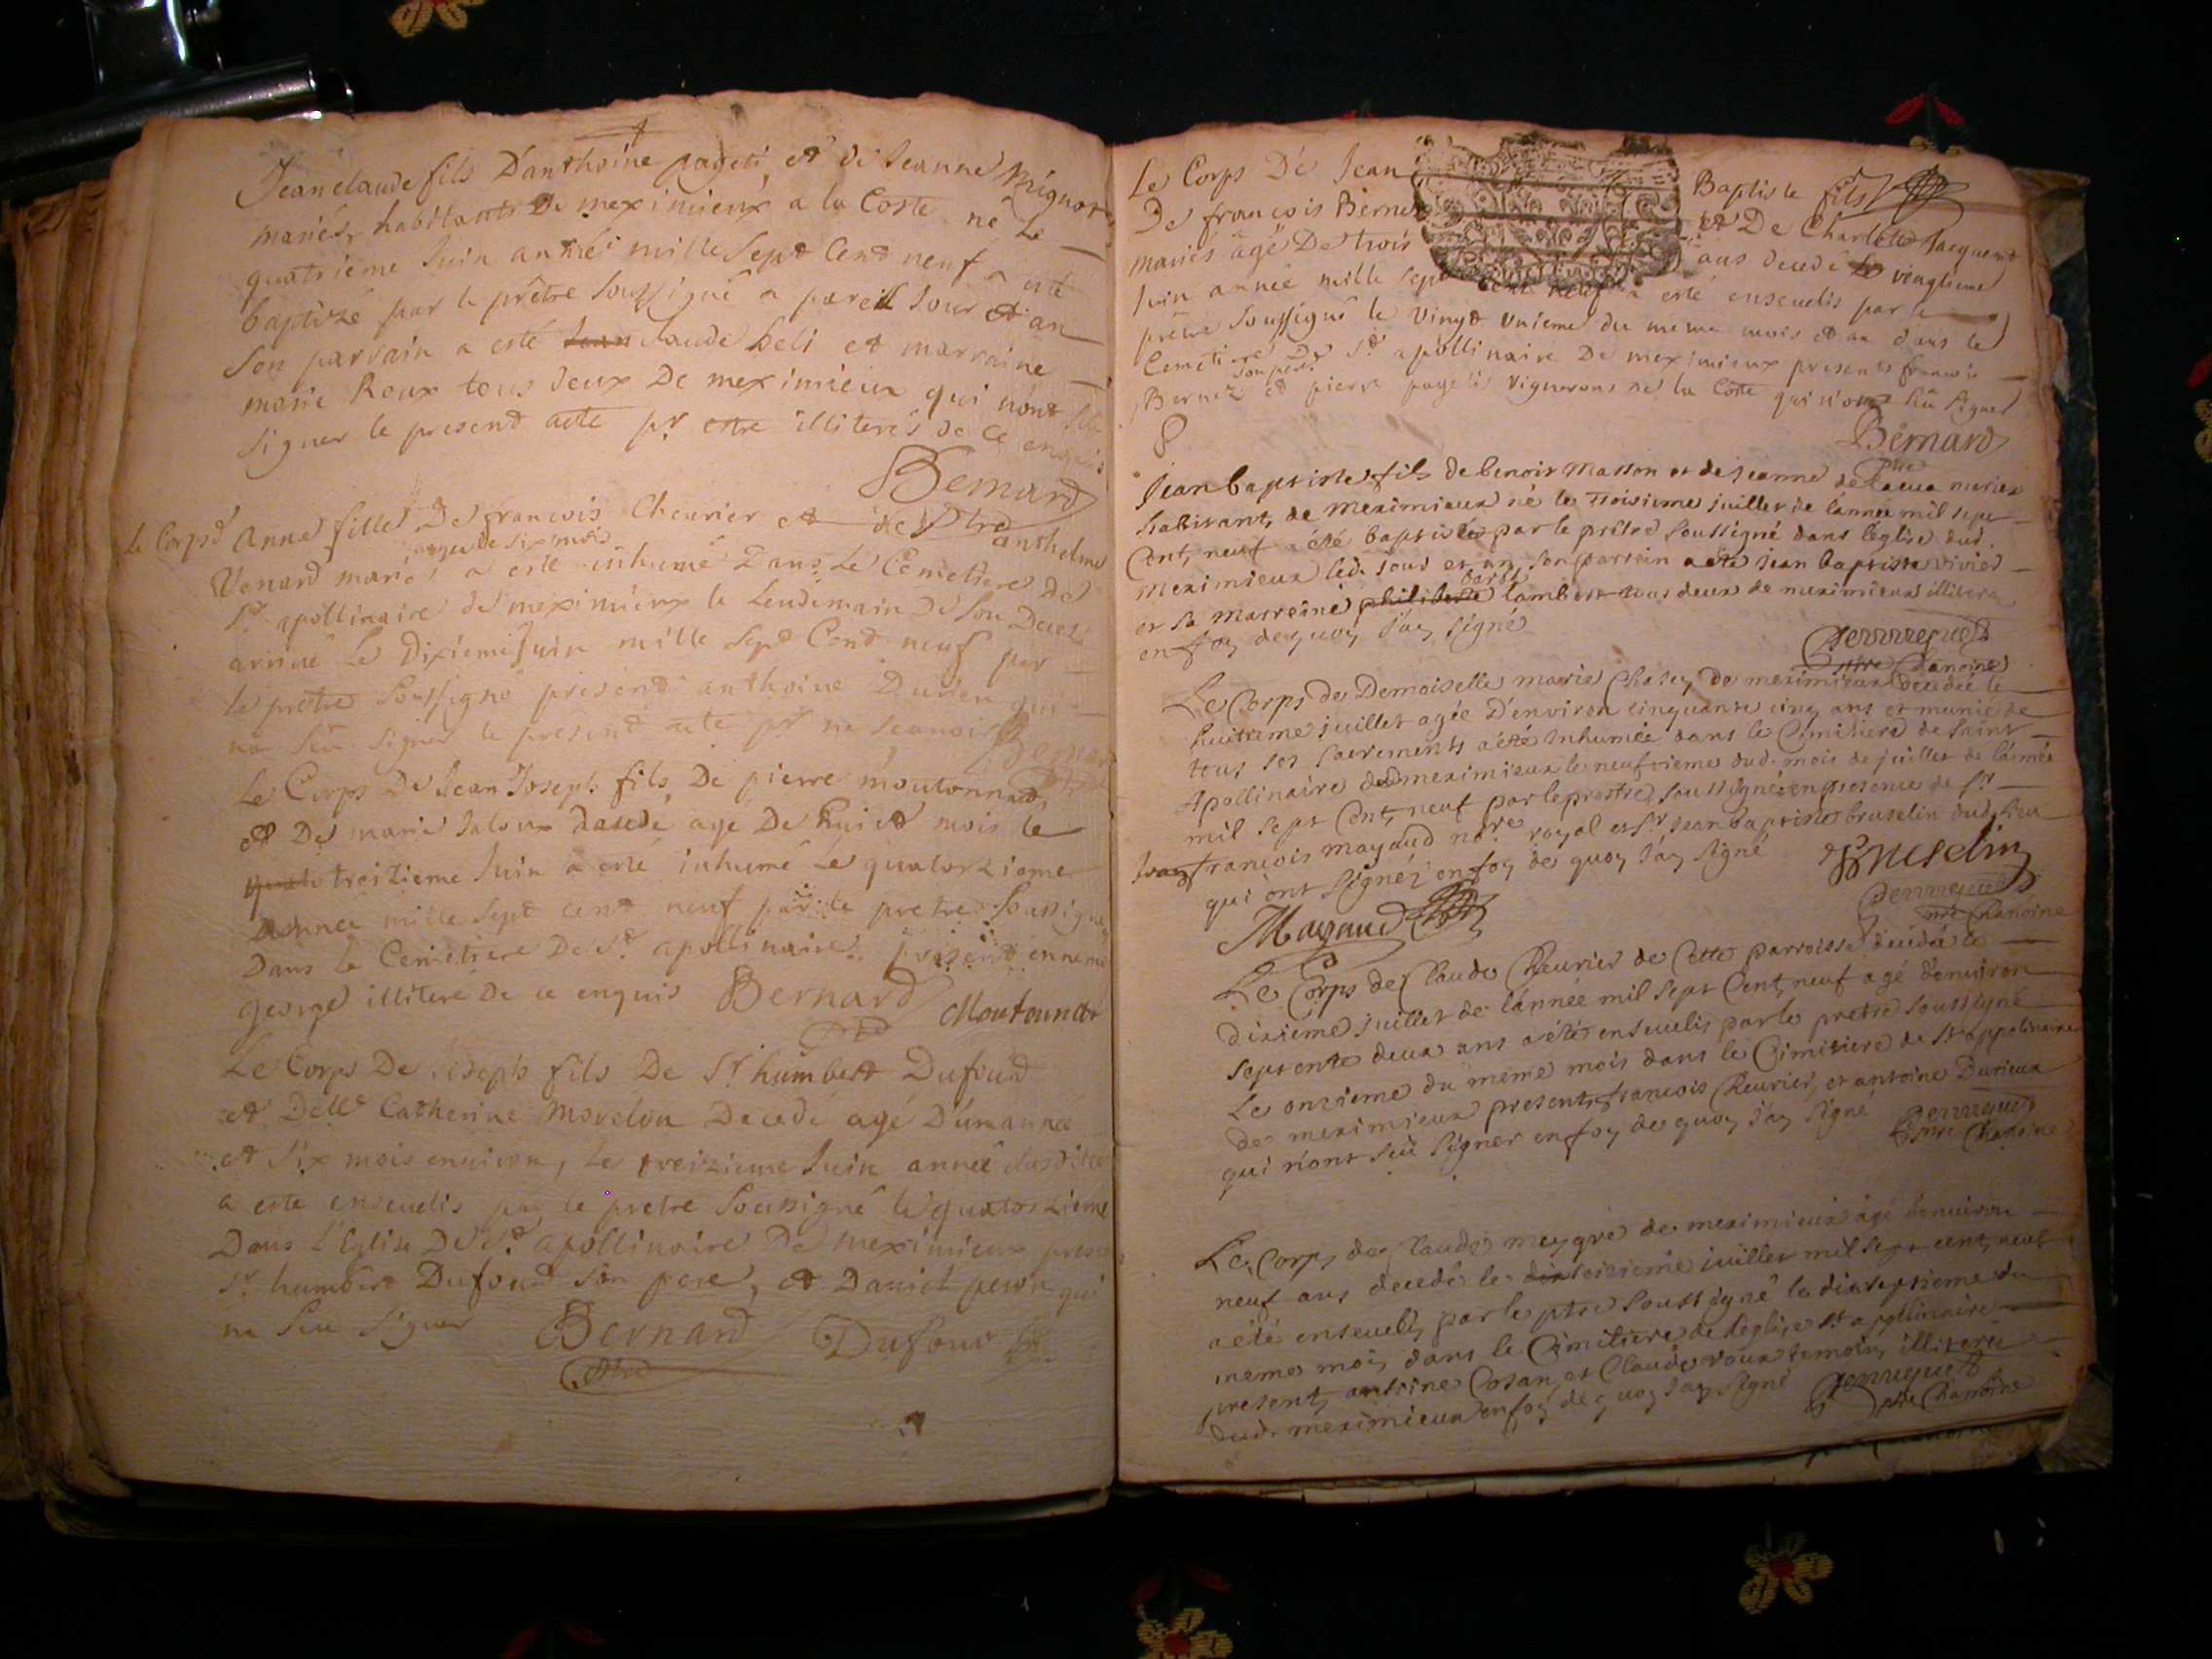 Jean claude fils D'anthoine pageti, et de Jeanne Mignot
mariés, habitants De meximieux a la Coste né Le
quatrieme Juin année mille Sept Cent neuf a esté
baptizé par le prêtre Soussigné a pareil Jour et an
Son parrain a esté Jean claude beli et marraine
marie Roux tous deux De meximieux qui n'ont
signer le present acte pr estre illiterés de ce enquis
Bernard
ptre
Le Corps d'Anne fille De francois Cheurier et de anthelme
agée de six mois
Venard mariés a esté inhumé Dans Le Cemetiere De
St apollinaire de meximieux le Lendemain De Son Decez
arrivé Le Dixieme Juin mille Sept Cent neuf par
le prêtre Soussigné present anthoine Durieu qui
na Seu signer le present acte pr ne scauoir
Bernard
Le Corps De Jean Joseph fils De pierre moutonnat
et De marie Jaloux decedé agé De huict mois le
troizieme Juin a esté inhumé Le quatorzieme
Dannée mille Sept cent neuf par le pretre Soussigné
Dans le Cemetiere De St apollinaire present ennemond
George illiteré De ce enquis Bernard Moutonnat
ptre
Le Corps De Joseph fils De Sr humbert Dufour
et Delle Catherine morelon Decedé agé D'une année
et Six mois enuiron, Le treizieme Juin année susdite
a esté enseuelis par le pretre Soussigné le quatorzieme
Dans l'Eglise De St apollinaire De meximieux present
Sr humbert Dufour Son pere, et Daniel peron qui
na Seu Signer Bernard Dufour
ptre
Le Corps De Jean Baptiste fils
De francois Bernez et De Charlotte Jacquet
mariés agé De trois ans decedé le vingtieme
Juin année mille Sept cent neuf a esté enseuelis par le
prêtre Soussigné le Vingt Unieme du meme mois et an dans le
Cemetiere De St apollinaire De meximieux presents francois
son pere
Bernez et pierre pagetis Vignerons de la Coste qui n'ont Seu signer
Bernard
ptre
Jean baptiste fils de benoit Masson et de Jeanne de mariez
habitants de meximieux né le troisieme juillet de l'année mil sept
Cent neuf a été baptisé par le prêtre soussigné dans l'église dud.
meximieux led. jour et an, son parrain a été Jean baptiste vivier
et sa marreine philiberte lambert tous deux de meximieux illiteres
en foy de quoy j'ay signé
ptre Chanoine
Le Corps de Demoiselle marie Chasey de meximieux décédée le
huitieme juillet agée D'environ cinquante cinq ans et munie de
tous ses sacrements a été inhumée dans le Cimitiere de saint
Apollinaire dud meximieux le neufvieme dud. mois de juillet de l'année
mil sept Cent neuf par le prestre soussigné en presence de Sr
francois mayaud nore royal et Sr Jean baptiste bruselin dud lieu
qui ont signéz en foy de quoy j'ay signé Bruselin
Mayaud
ptre Chanoine
Le Corps de Claude Cheurier de Cette parroisse decedé le
dixieme juillet de l'année mil sept Cent neuf agé d'enuiron
septente deux ans a été enseuelis par le pretre soussigné
Le onzieme du meme mois dans le Cimitiere de st appolinaire
de meximieux presents francois Cheurier, et antoine Durieux
qui n'ont seu signer en foy de quoy j'ay signé
ptre Chanoine
Le Corps de Claude meygre de meximieux agé d'enuiron
neuf ans decedé le seizieme juillet mil sept cent neuf
a été enseuelis par le ptre soussigné le dixseptieme du
meme mois dans le Cimitiere de l'eglise st apollinaire
presents antoine Cozan et Claude roux temoins illiteres
dud. meximieux en foy de quoy j'ay signé
ptre Chanoine